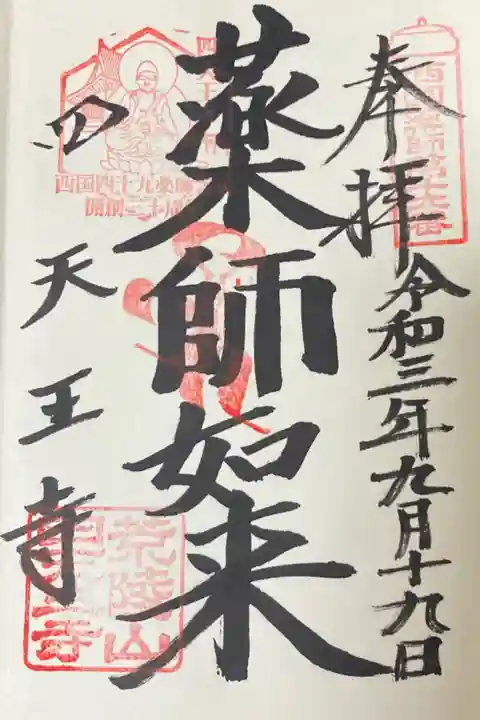 奉拝
令和三年九月十九日
薬師如来
四天王寺
西国四十九薬師
開創三十周年
荒陵山
四天王寺